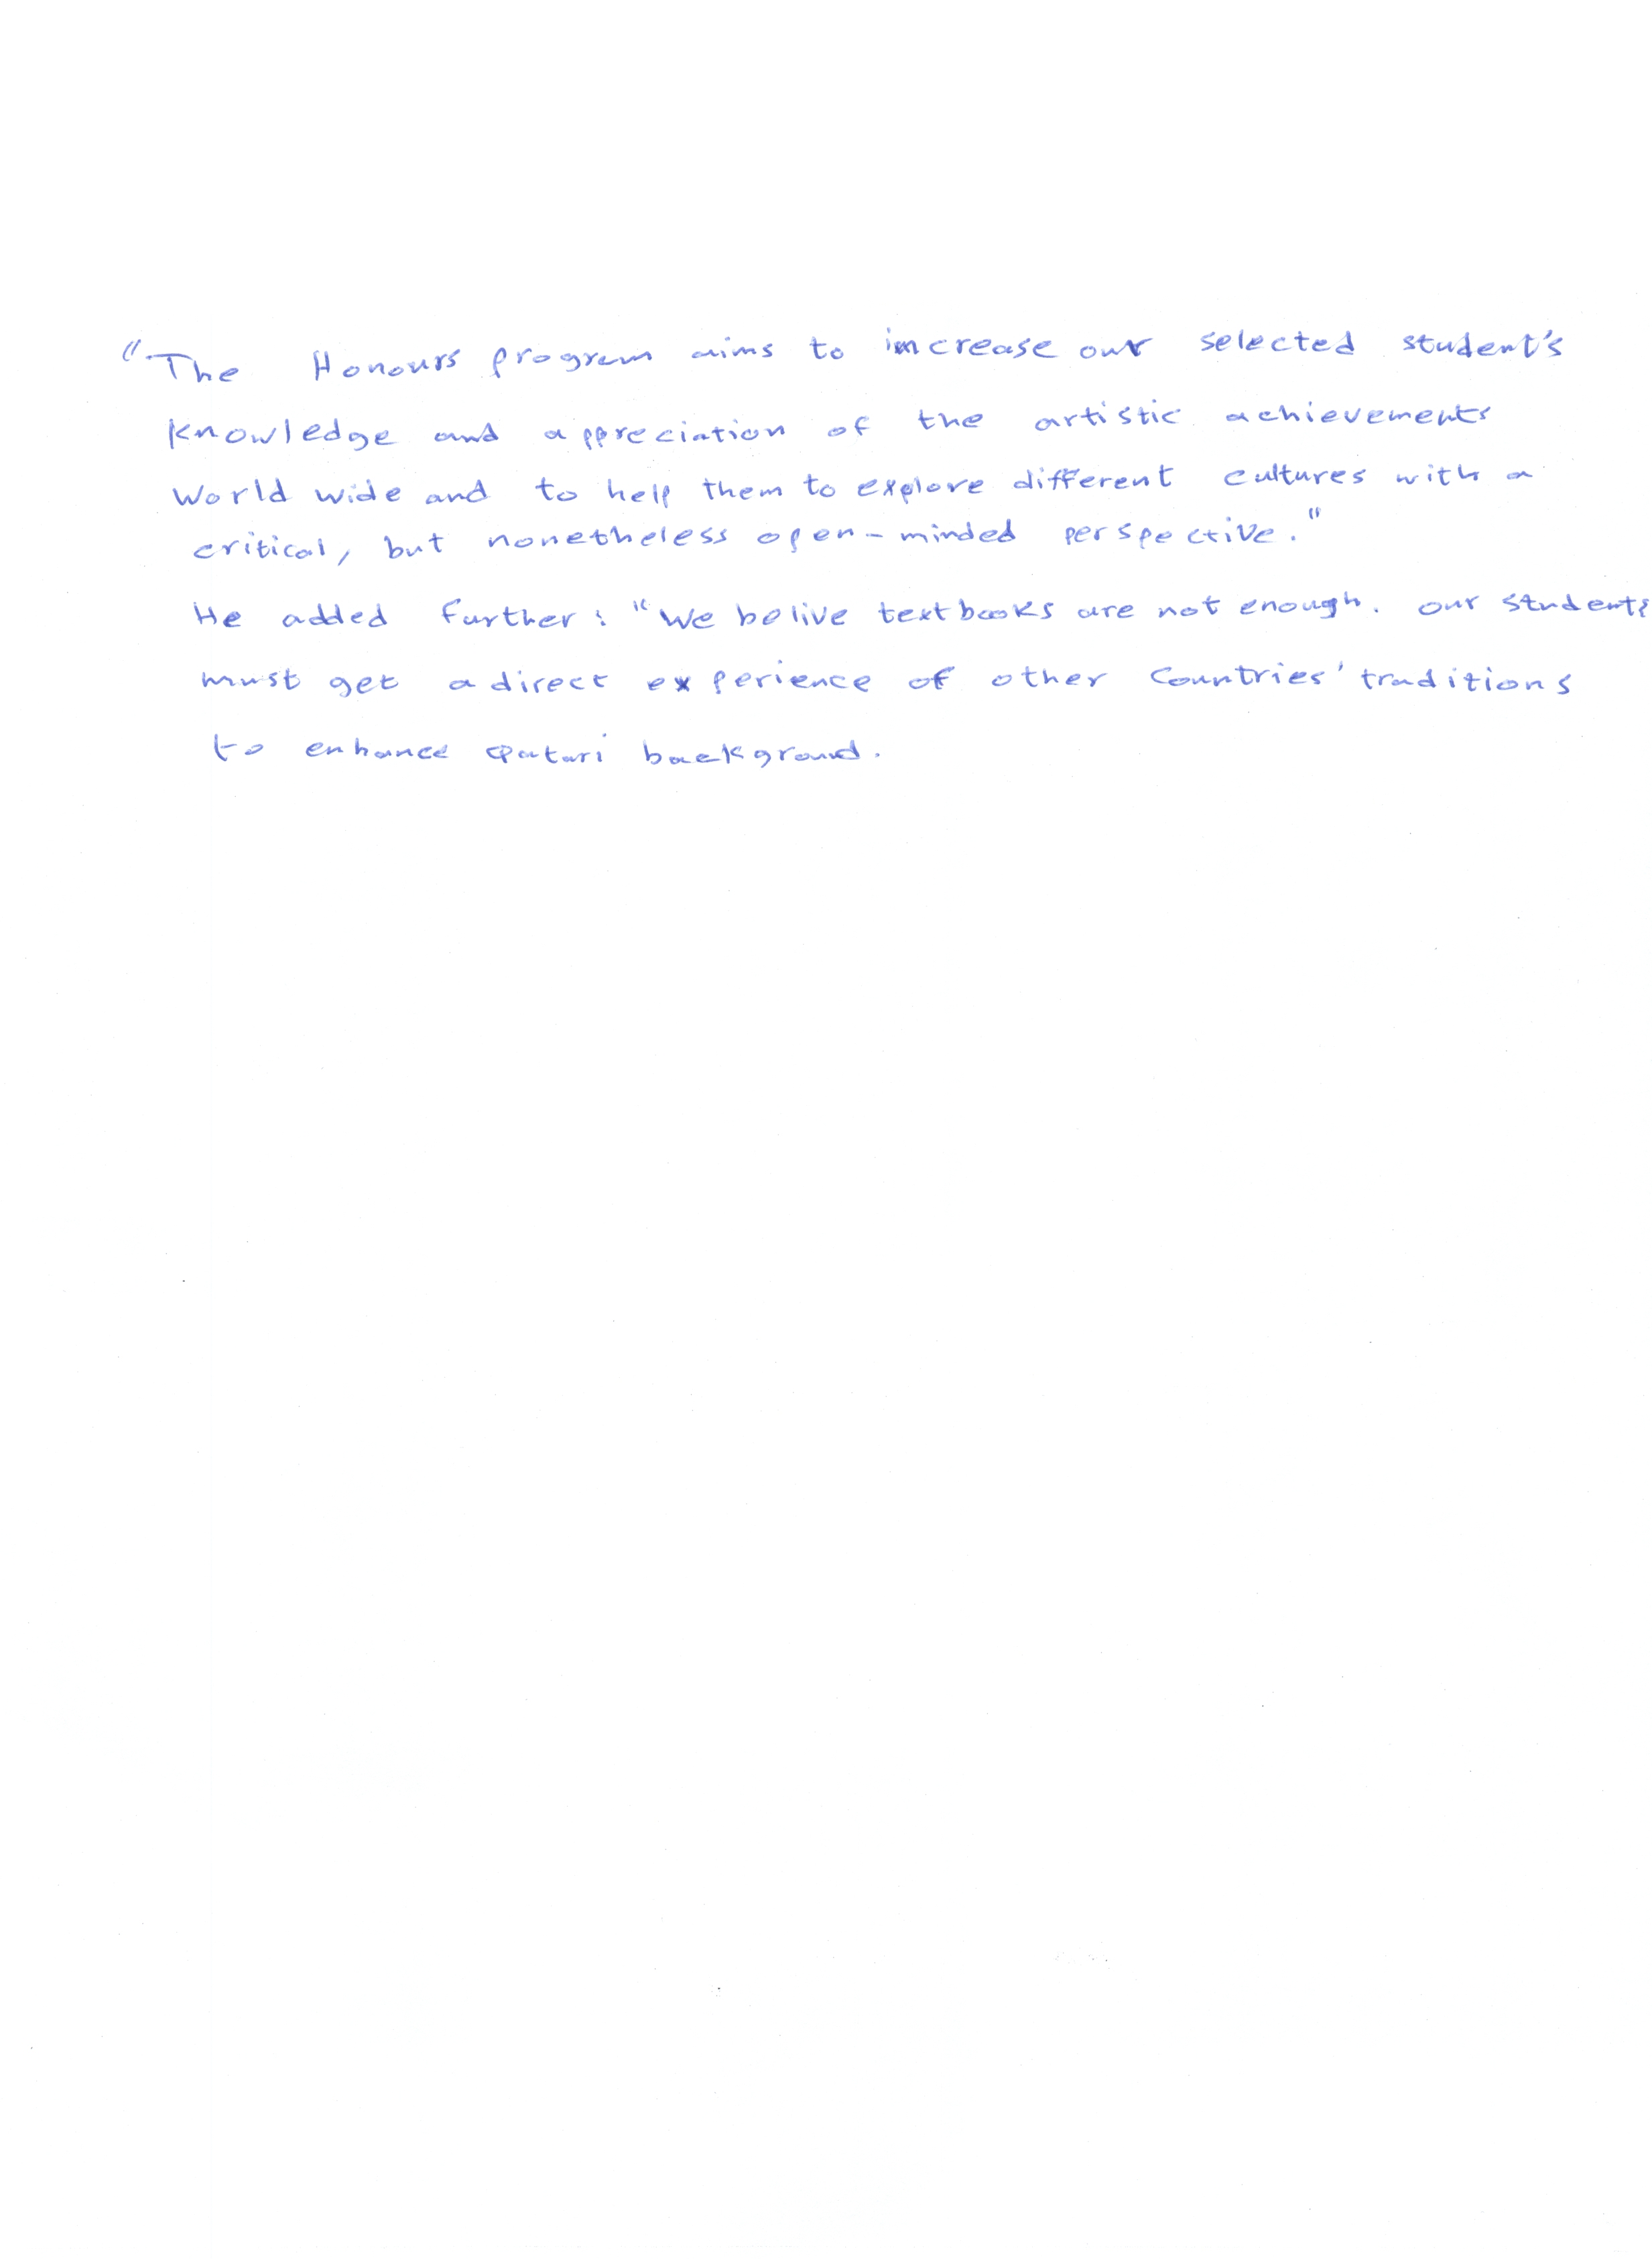 "The Honours program aims to increase our selected student's
knowledge and appreciation of the artistic achievements
world wide and to help them to explore different cultures with a
critical, but nonetheless open-minded perspective."
He added further: "We belive textbooks are not enough. our students
must get a direct experience of other countries' traditions
to enhance Qatari background.